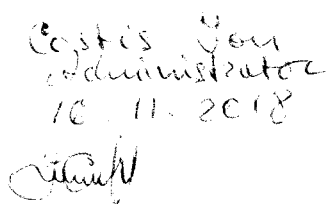 Costis You
Administrator
16.11.2018